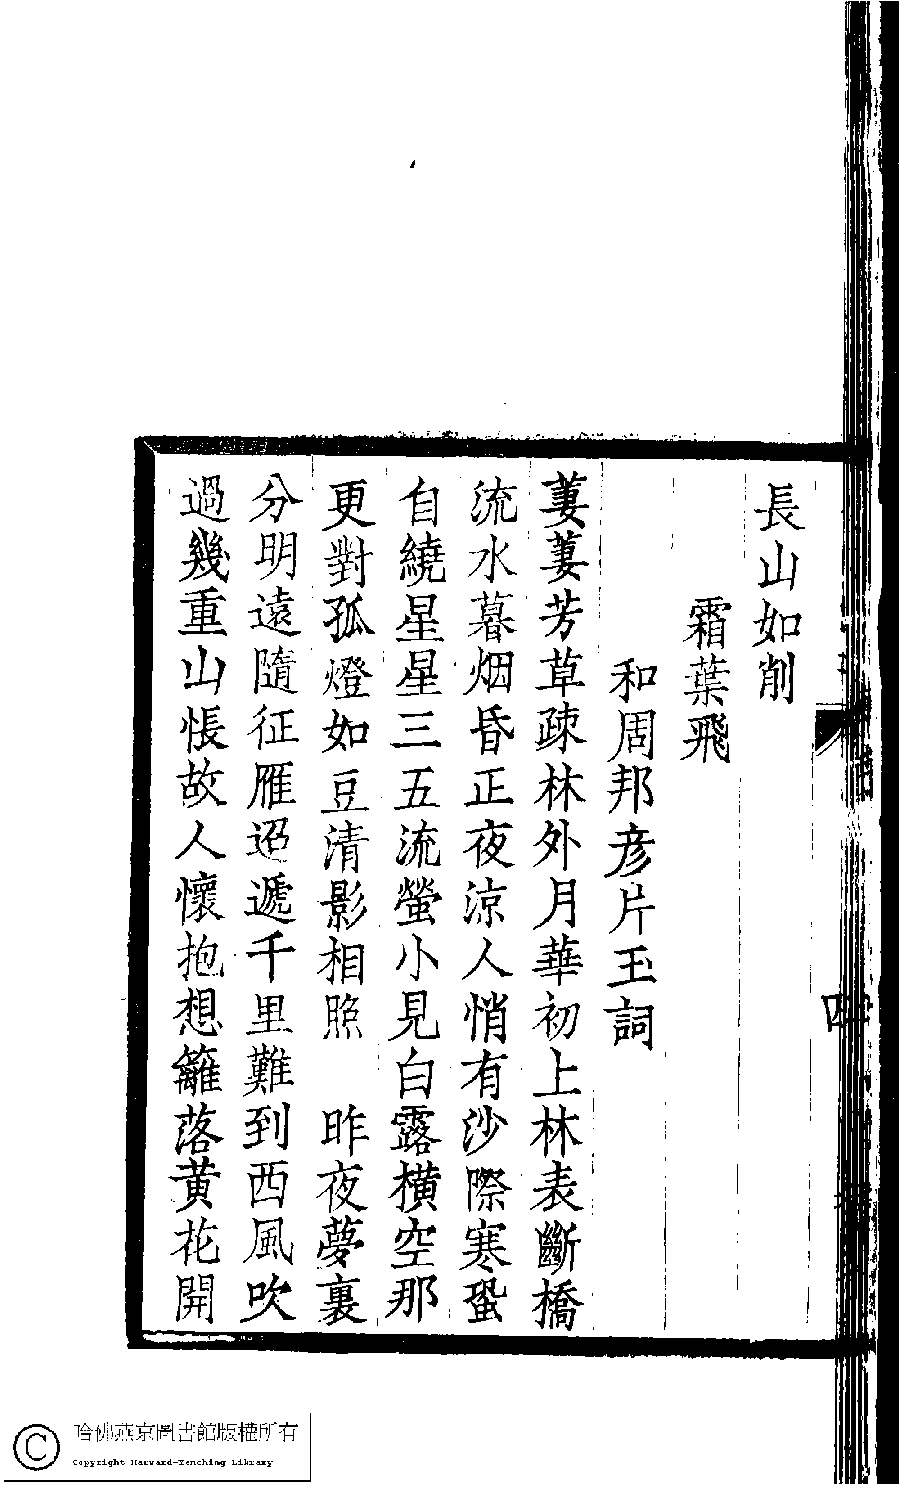 長山如削
霜葉飛
和周邦彦片玉詞
萋萋芳草疎林外月華初上林表斷橋
流水暮烟昏正夜涼人悄有沙際寒蛩
自繞星星三五流螢小見白露橫空那
更對孤燈如豆清影相照　昨夜夢裏
分明遠隨征雁迢遞千里難到西風吹
過幾重山悵故人懷抱想籬落黄花開
四
哈佛燕京圖書館版權所有
Copyright Harvard-Yenching Library